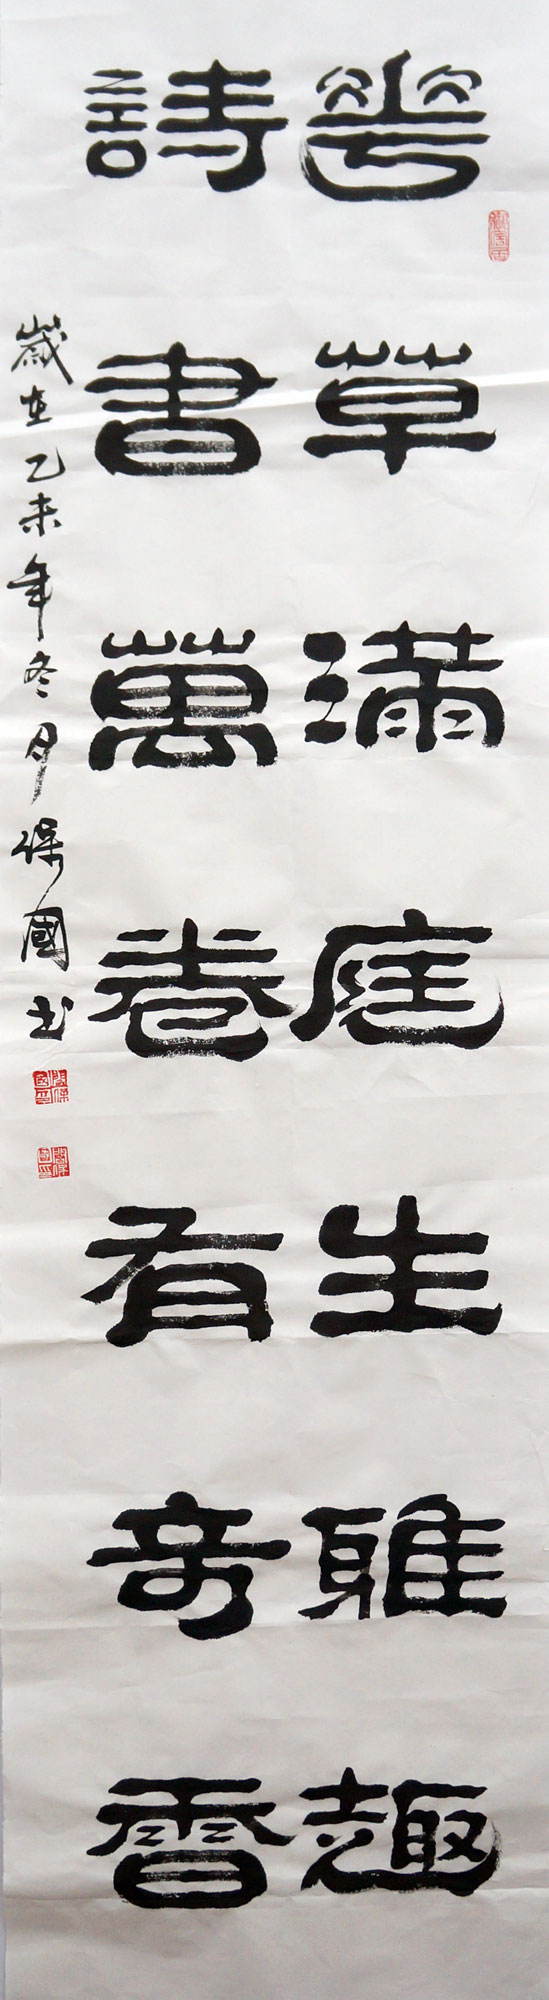 花草滿庭生雅趣
詩書萬卷有奇香
歲在乙未年冬月保國书